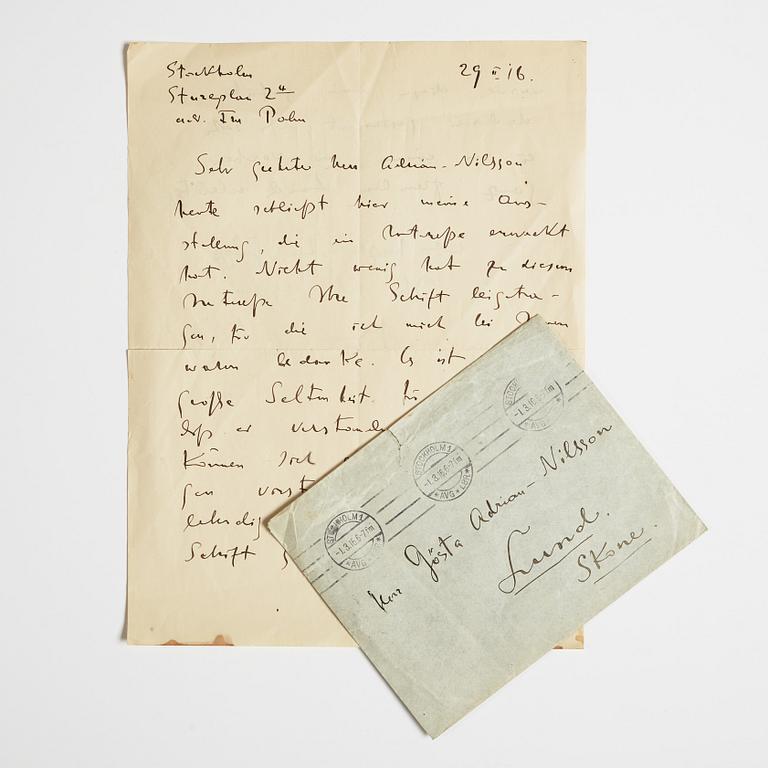 Stockholm
29 II 16.
Stureplan 2 4
adr. Palm
Sehr geehrter Herr Adrian-Nilsson
heute schließt hier meine Aus-
stellung, die ein Interesse erweckt
hat. Nicht wenig hat zu diesem
Interesse Ihre Schrift beigetra-
gen, für die ich mich bei Ihnen
warm bedanke. Es ist
große Seltenheit für
daß er verstanden
Können sich
gen
lebendig
Schrift
STOCKHOLM 1
-1.3.16.6-7 fm
*AVG*LBR*
STOCKHOLM 1
-1.3.16.6-7 fm
*AVG*LBR*
STOCK
-1.3.16.6-7 fm
*AVG
Herr Gösta Adrian-Nilsson
Lund.
Skåne.